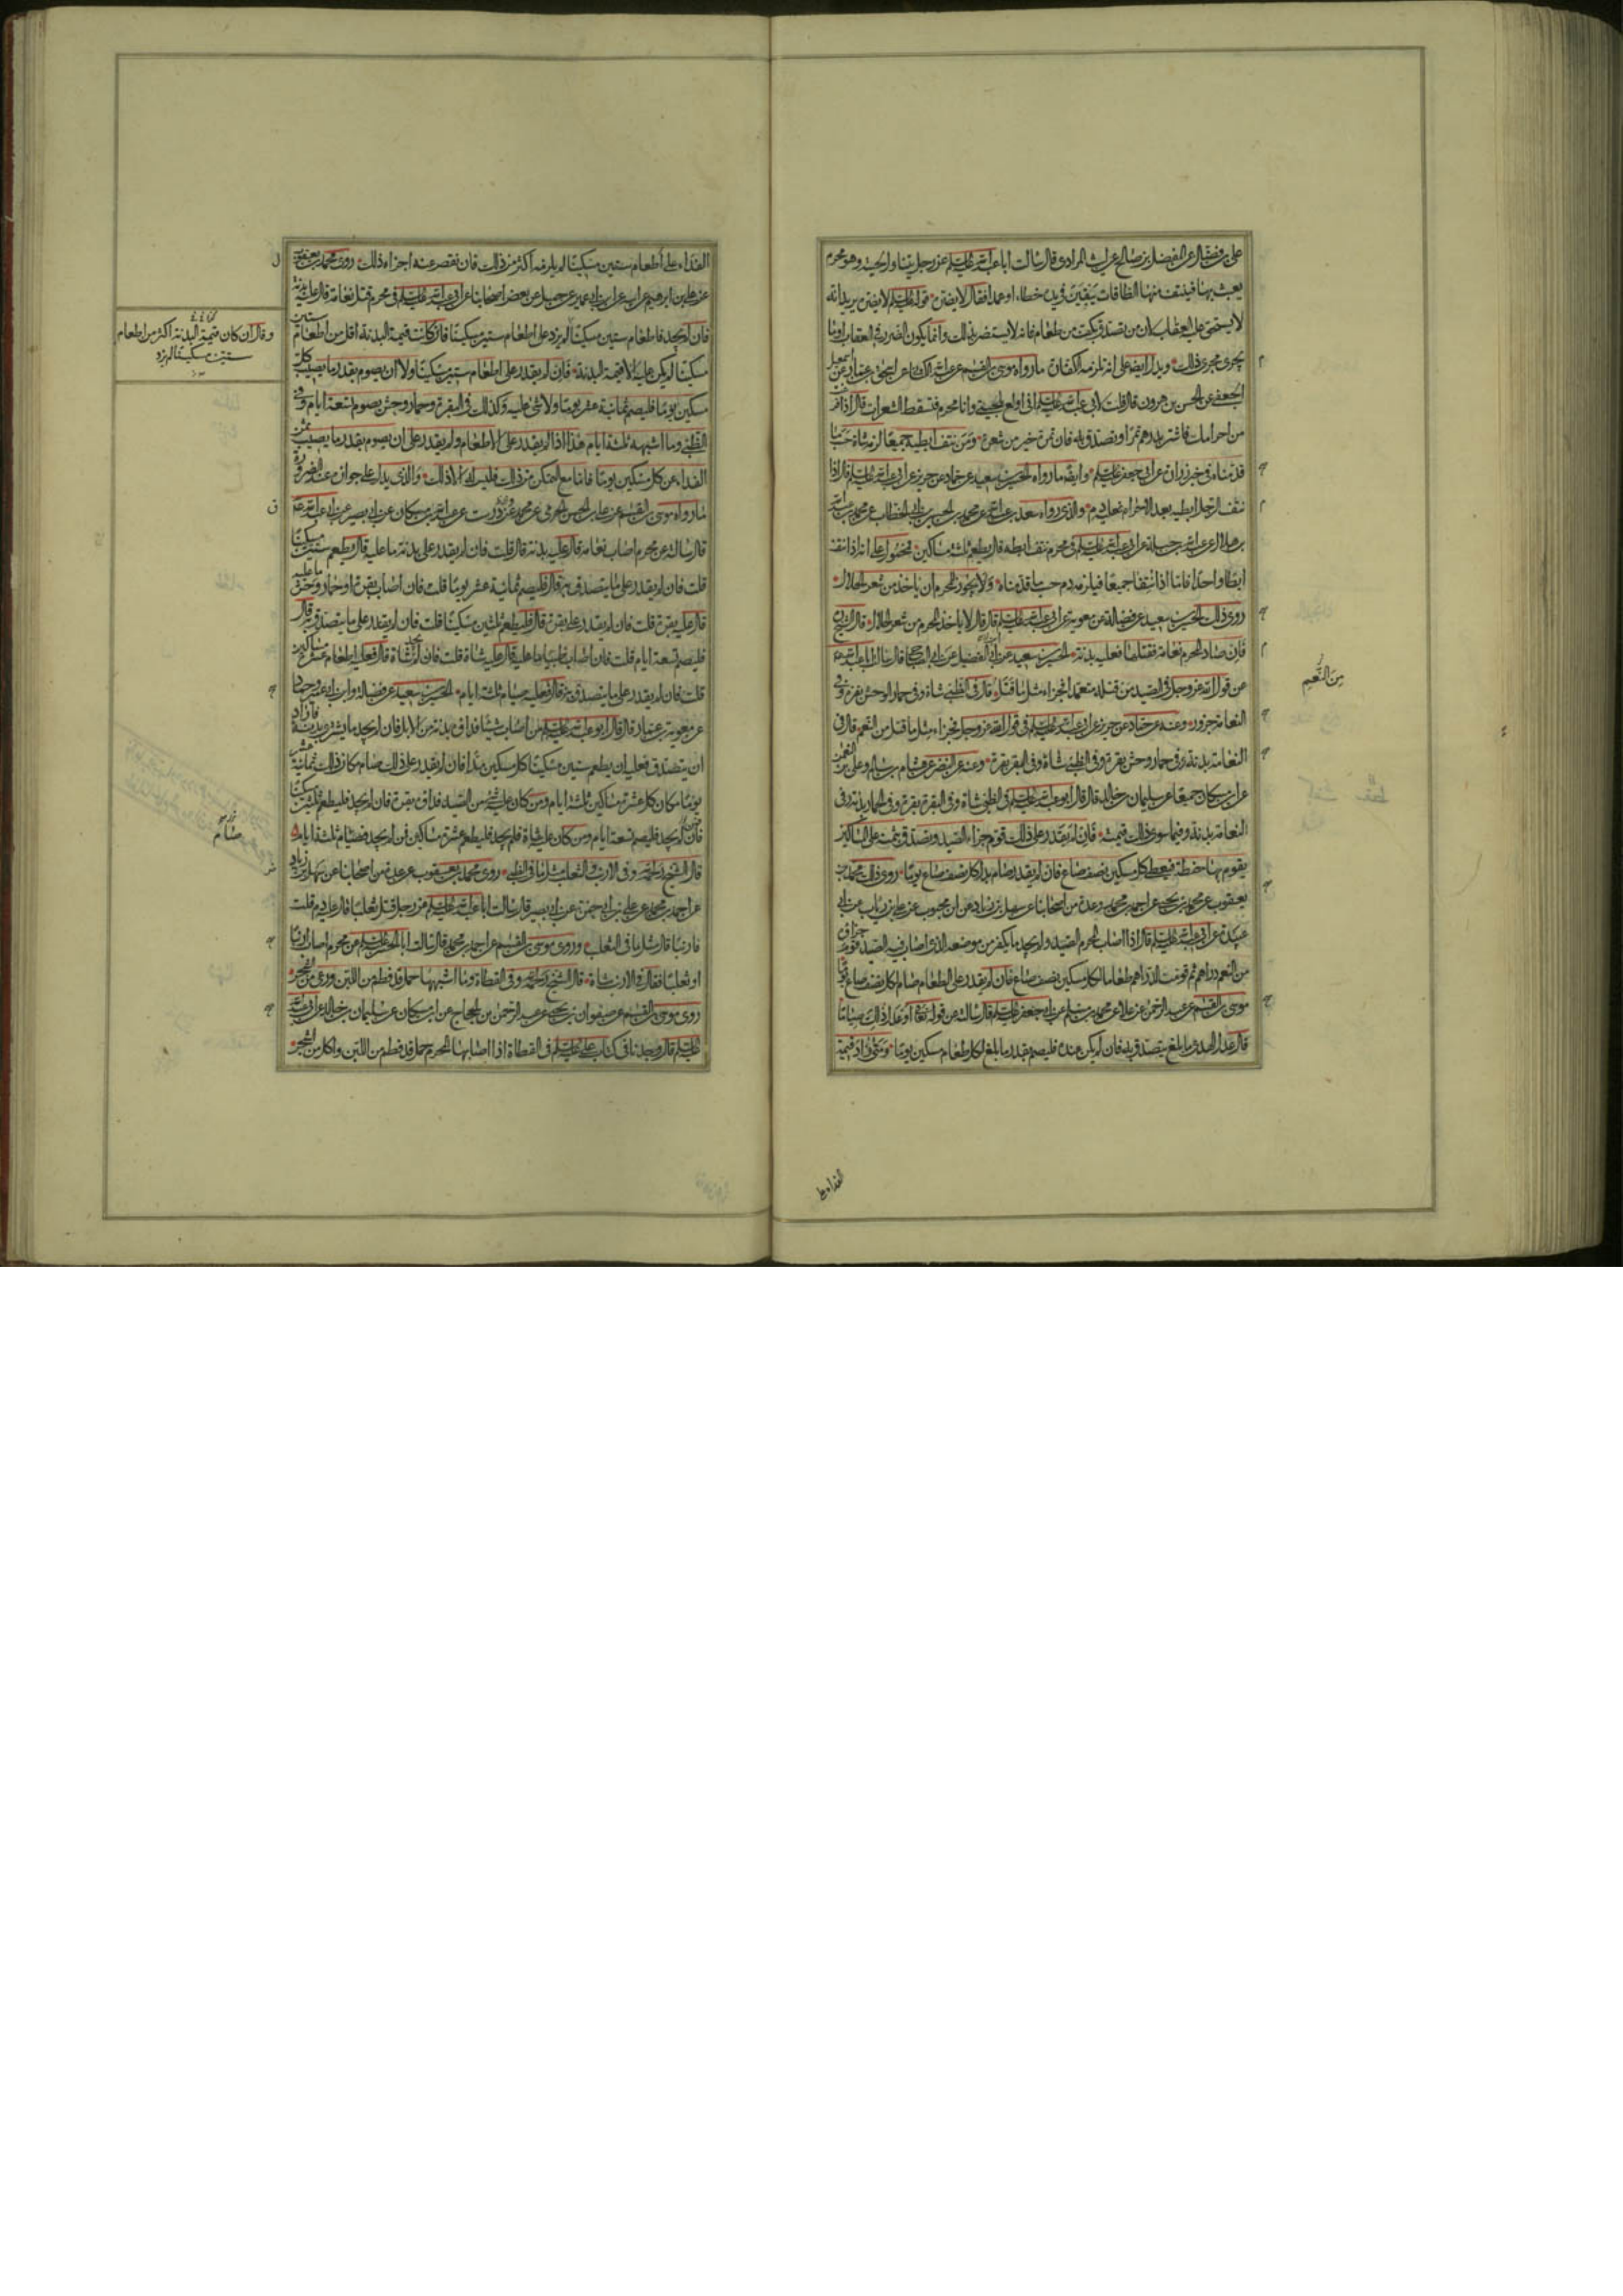 على بن فضال عن المفضل بن صالح عن ليث المرادى قال سالت ابا عبد الله عليه السلم عن رجل يتناول لحيته وهو محرم
يعبث بها فينتف منها الطاقات يبقين فى يده خطاء او عمدا فقال لا يضره قوله عليه السلم لا يضره يريد انه
لا يستحق عليه العقاب لان من تصدق بكف من طعام فانه لا يستضر بذلك وانما يكون الضرر فى العقاب او ما
يجرى مجرى ذلك ويدل ايضا على انه تلزمه الكفارة ما رواه موسى بن القسم عن عبد الله الكنانى عن اسحق بن عمار عن اسمعيل
الجعفى عن الحسن بن هرون قال قلت لابى عبد الله عليه السلم انى اولع بلحيتى وانا محرم فتسقط الشعرات قال اذا فرغت
من احرامك فاشتر بدرهم تمرا وتصدق به فان تمرة خير من شعرة ومن نتف ابطيه جميعا لزمه شاة حسب ما
قدمناه فى خبر زرارة عن ابى جعفر عليه السلم وايضا ما رواه الحسين بن سعيد عن حماد عن حريز عن ابى عبد الله عليه السلم قال اذا
نتف الرجل ابطيه بعد الاحرام فعليه دم والذى رواه سعد بن عبد الله عن محمد بن الحسين بن ابى الخطاب عن محمد بن عبد الله
بن هلال عن عبد الله بن جبلة عن ابى عبد الله عليه السلم فى محرم نتف ابطه قال يطعم ثلثة مساكين فمحمول على انه اذا نتف
ابطا واحدا فاما اذا نتفهما جميعا فيلزمه دم حسب ما قدمناه ولا يجوز للمحرم ان ياخذ من شعر الحلال
روى ذلك الحسين بن سعيد عن فضالة عن معوية عن ابى عبد الله عليه السلم قال قال لا ياخذ المحرم من شعر الحلال قال الشيخ
فان صاد المحرم نعامة فقتلها فعليه بدنة الحسين بن سعيد عن ابن الفضيل عن ابى الصباح قال سالت ابا عبد الله
عن قول الله عز وجل فى الصيد من قتله متعمدا فجزاء مثل ما قتل قال فى الظبى شاة وفى حمار الوحش بقرة وفى
النعامة جزور وعنه عن حماد عن حريز عن ابى عبد الله عليه السلم فى قول الله عز وجل فجزاء مثل ما قتل من النعم قال فى
النعامة بدنة وفى حمار وحش بقرة وفى الظبى شاة وفى البقرة بقرة وعنه عن النضر عن هشام بن سالم وعلى بن النعمن
عن ابن مسكان جميعا عن سليمان بن خالد قال قال ابو عبد الله عليه السلم فى الظبى شاة وفى البقرة بقرة وفى الحمار بدنة وفى
النعامة بدنة وفيما سوى ذلك قيمته فان لم يقدر على ذلك قوم جزاء الصيد وتصدق بثمنه على المساكين
يقوم بها حنطة فيعطى كل مسكين نصف صاع فان لم يقدر صام بدل كل نصف صاع يوما روى ذلك محمد بن
يعقوب عن محمد بن يحيى عن احمد بن محمد وعدة من اصحابنا عن سهل بن زياد عن ابن محبوب عن على بن رئاب عن ابى
عبيدة عن ابى عبد الله عليه السلم قال اذا اصاب المحرم الصيد ولم يجد ما يكفر من موضعه الذى اصاب فيه الصيد قوم جزاؤه
من النعم دراهم ثم قومت الدراهم طعاما لكل مسكين نصف صاع فان لم يقدر على الطعام صام لكل نصف صاع يوما
موسى بن القسم عن عبد الرحمن عن علا عن محمد بن مسلم عن ابى جعفر عليه السلم قال سالته عن قوله تعالى او عدل ذلك صياما
قال عدل الهدى ما بلغ يتصدق به فان لم يكن عنده فليصم بقدر ما بلغ لكل طعام مسكين يوما ومتى زاد قيمة
من النعيم
الفداء على
الفداء على اطعام ستين مسكينا لم يلزمه اكثر من ذلك فان نقص عنه اجزاه ذلك روى محمد بن يعقوب
عن على بن ابرهيم عن ابيه عن ابن ابى عمير عن جميل عن بعض اصحابنا عن ابى عبد الله عليه السلم فى محرم قتل نعامة قال عليه بدنة
فان لم يجد فاطعام ستين مسكينا لم يزد على اطعام ستين مسكينا فان كانت قيمة البدنة اقل من اطعام ستين
مسكينا لم يكن عليه الا قيمة البدنة فان لم يقدر على اطعام ستين مسكينا ولا ان يصوم بقدر ما يصيب كل
مسكين يوما فليصم ثمانية عشر يوما ولا شئ عليه وكذلك فى البقرة وحمار وحش يصوم تسعة ايام وفى
الظبى وما اشبهه ثلثة ايام هذا اذا لم يقدر على الاطعام ولم يقدر على ان يصوم بقدر ما يصيب ثمن
الفداء عن كل مسكين يوما فاما مع التمكن من ذلك فليس له الا ذلك والذى يدل على جواز عند الضرورة
ما رواه موسى بن القسم عن على بن الحسن الجرمى عن محمد عن درست عن عبد الله بن مسكان عن ابى بصير عن ابى عبد الله
قال سالته عن محرم اصاب نعامة قال عليه بدنة قال قلت فان لم يقدر على بدنة ما عليه قال يطعم ستين مسكينا
قلت فان لم يقدر على ما يتصدق به قال فليصم ثمانية عشر يوما قلت فان اصاب بقرة او حمار وحش ما عليه
قال عليه بقرة قلت فان لم يقدر على بقرة قال فليطعم ثلثين مسكينا قلت فان لم يقدر على ما يتصدق به قال
فليصم تسعة ايام قلت فان اصاب ظبيا ما عليه قال عليه شاة قلت فان لم يجد شاة قال فعليه اطعام عشرة مساكين
قلت فان لم يقدر على ما يتصدق به قال فعليه صيام ثلثة ايام الحسين بن سعيد عن فضالة وابن ابى عمير وحماد
عن معوية بن عمار قال قال ابو عبد الله عليه السلم من اصاب شيئا فداؤه بدنة من الابل فان لم يجد ما يشترى بدنة فاراد
ان يتصدق فعليه ان يطعم ستين مسكينا كل مسكين مدا فان لم يقدر على ذلك صام مكان ذلك ثمانية عشر
يوما مكان كل عشرة مساكين ثلثة ايام ومن كان عليه شئ من الصيد فداؤه بقرة فان لم يجد فليطعم ثلثين مسكينا
فان لم يجد فليصم تسعة ايام ومن كان عليه شاة فلم يجد فليطعم عشرة مساكين فمن لم يجد فصيام ثلثة ايام
قال الشيخ رحمه الله وفى الارنب والثعلب مثل ما فى الظبى روى محمد بن يعقوب عن عدة من اصحابنا عن سهل بن زياد
عن احمد بن محمد عن على بن ابى حمزة عن ابى بصير قال سالت ابا عبد الله عليه السلم عن رجل قتل ثعلبا قال عليه دم قلت
فارنبا قال مثل ما فى الثعلب وروى موسى بن القسم عن احمد بن محمد قال سالت ابا الحسن عليه السلم عن محرم اصاب ارنبا
او ثعلبا فقال فى الارنب شاة قال الشيخ رحمه الله وفى القطاة وما اشبهها حمل قد فطم من اللبن ورعى من الشجر
روى موسى بن القسم عن صفوان بن يحيى عن عبد الرحمن بن الحجاج عن ابن مسكان عن سليمان بن خالد عن ابى عبد الله
عليه السلم قال وجدنا فى كتاب على عليه السلم فى القطاة اذا اصابها المحرم حمل قد فطم من اللبن واكل من الشجر
وقال ان كان قيمة البدنة اكثر من اطعام
ستين مسكينا لم يزد
صام